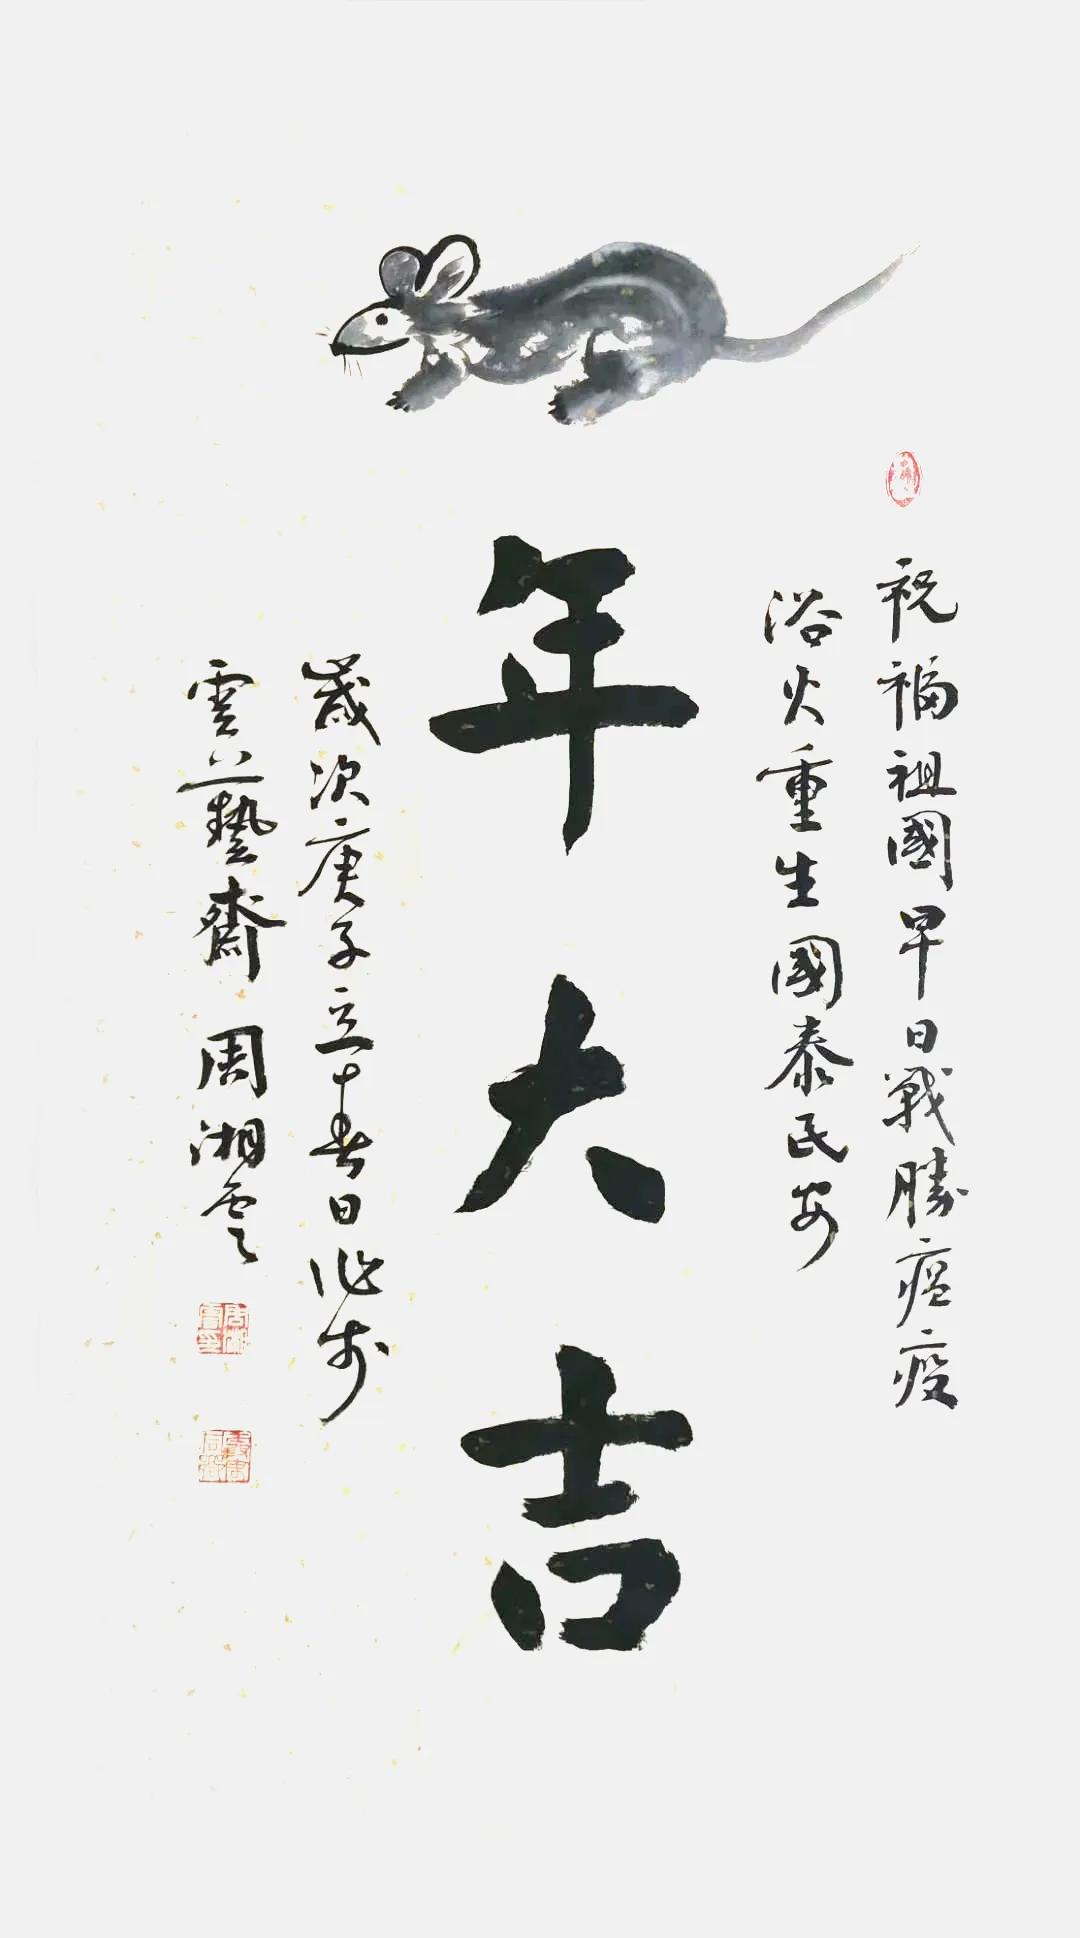 祝福祖國早日戰勝瘟疫
浴火重生國泰民安
年大吉
歲次庚子立春日作於
雲上藝齋 周湘雲